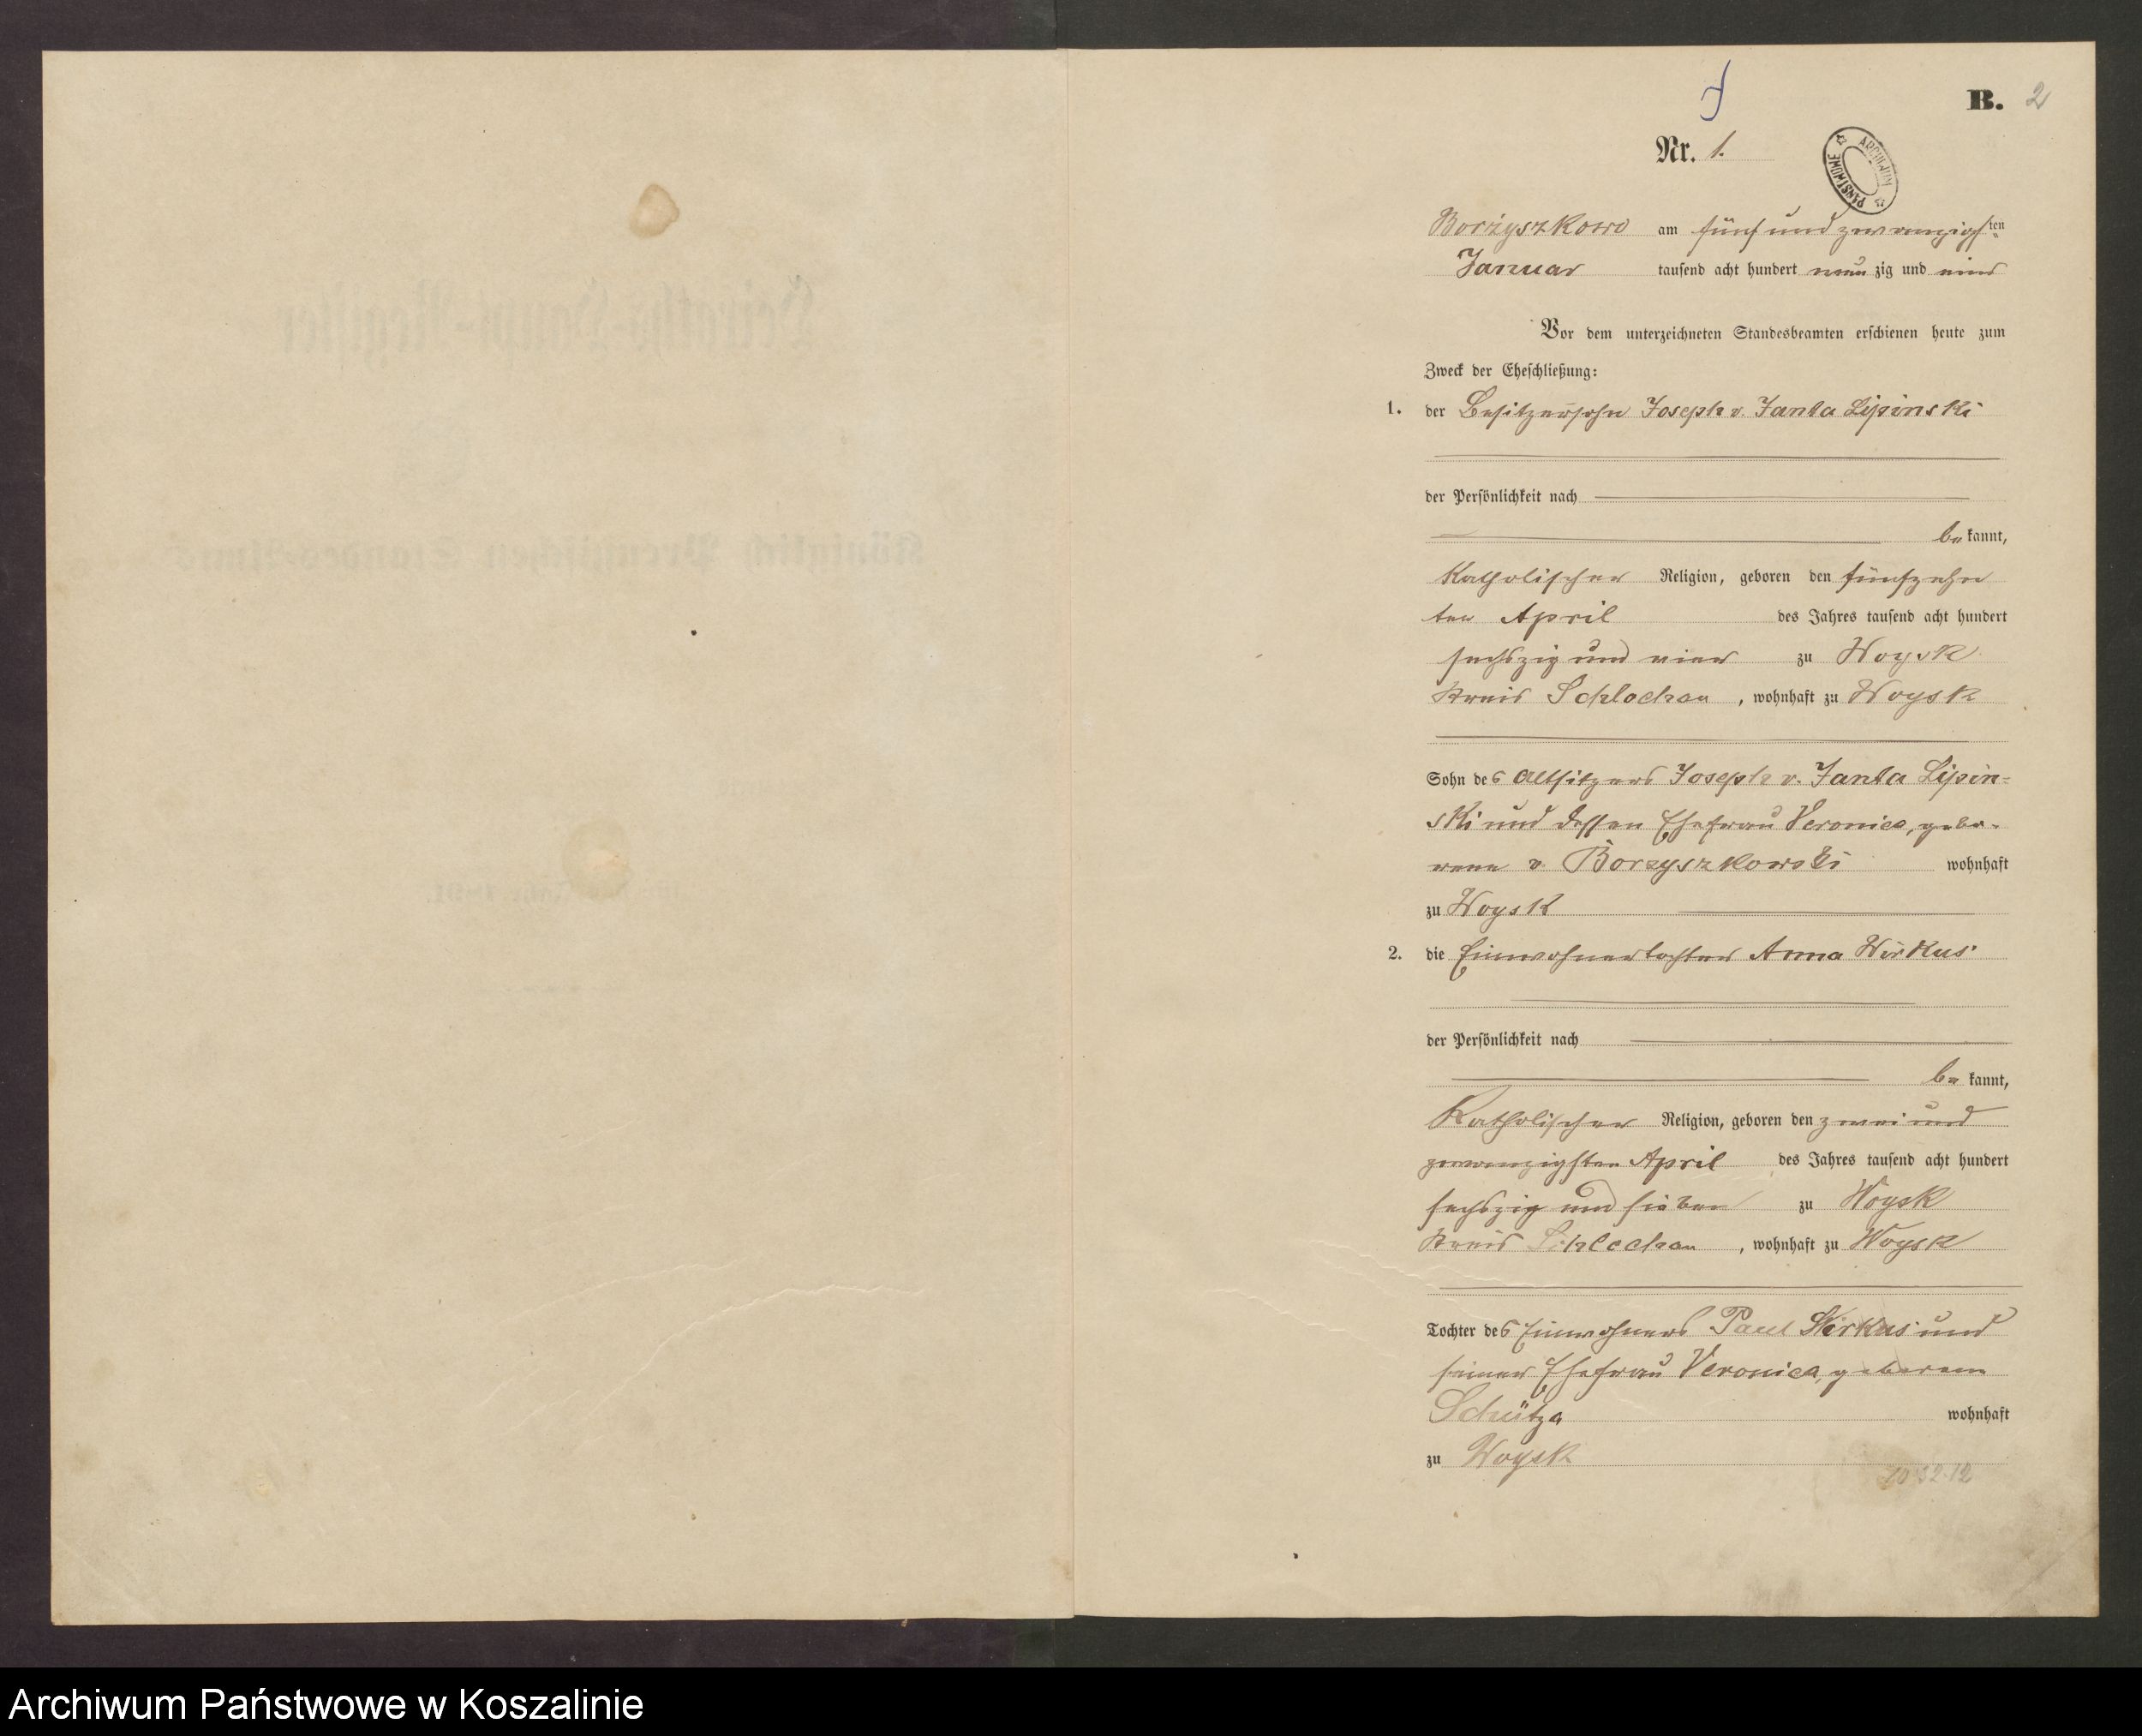 B. 2
Nr. 1.
ARCHIWUM PAŃSTWOWE
Borzyszkowo am fünf und zwanzigsten
Januar tausend acht hundert neunzig und eins
Vor dem unterzeichneten Standesbeamten erschienen heute zum
Zweck der Eheschließung:
1. der Besitzersohn Joseph v. Janta Lipinski
der Persönlichkeit nach
bekannt,
katholischer Religion, geboren den fünfzehn
ten April des Jahres tausend acht hundert
sechszig und vier zu Woysk
Kreis Schlochau, wohnhaft zu Woysk
Sohn des Altsitzers Joseph v. Janta Lipin-
ski und dessen Ehefrau Veronica, gebo-
rene v. Borzyszkowski wohnhaft
zu Woysk
2. die Einwohnertochter Anna Wirkus
der Persönlichkeit nach
bekannt,
katholischer Religion, geboren den zwei und
zwanzigsten April des Jahres tausend acht hundert
sechszig und sieben zu Woysk
Kreis Schlochau, wohnhaft zu Woysk
Tochter des Einwohners Paul Wirkus und
seiner Ehefrau Veronica, geborene
Schütza wohnhaft
zu Woysk
Archiwum Państwowe w Koszalinie